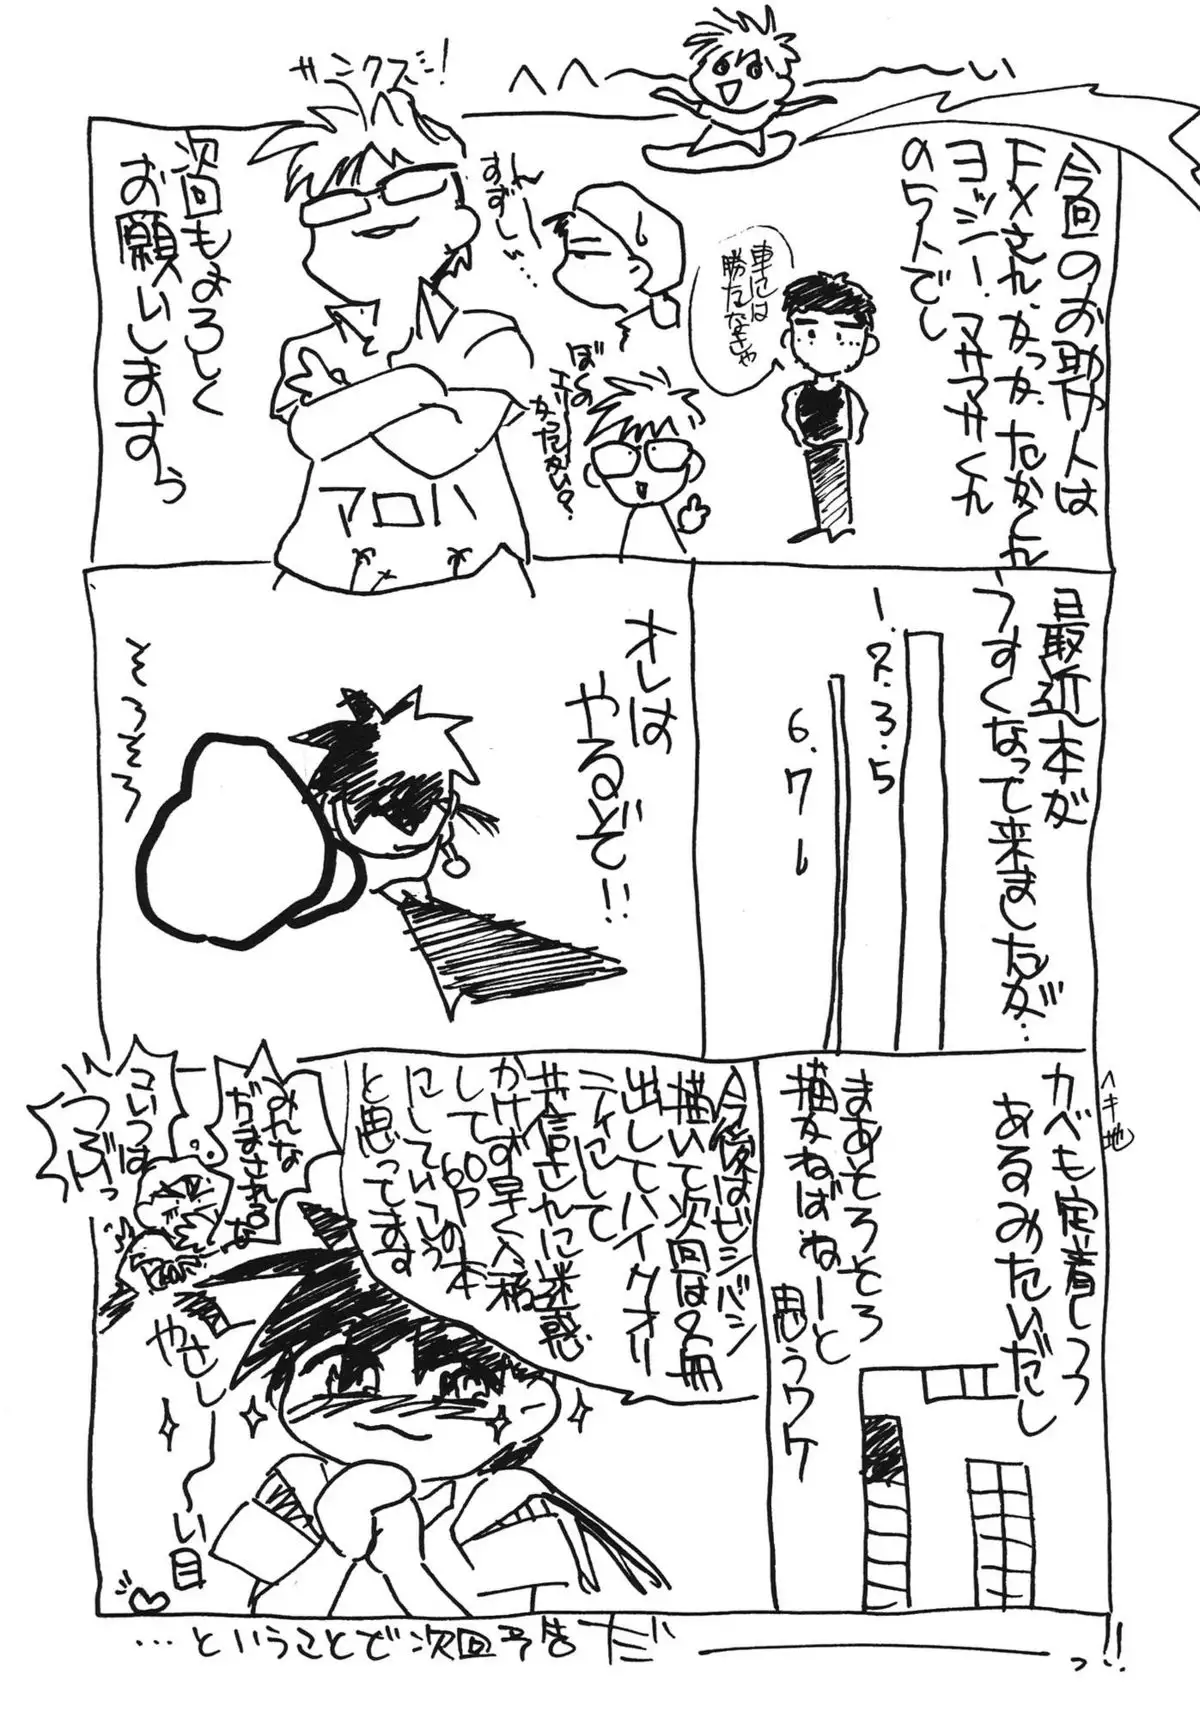 サンクス!
へへ〜〜い
今回のお助け人は
FXさん、なつか、たかくん
ヨッシー、マサマサくん
の5人でし
車には
勝たなきゃ
んー
すずし…
ぼくの
エリー
かったかい?
アロハ
次回もよろしく
お願いしますら
最近本が
うすくなって来ましたが…
1.2.3.5
6.7し
オレは
やるぞ!!
そろそろ
カベも定着しつつ
あるみたいだし
まあそろそろ
描かねばねーと
思うワケ
今後はビシバシ
描いて次回は2冊
出してハイクオリ
ティにして
共信さんに迷惑
かけず早く入稿
して60Pの本
にしていこう
と思ってます
みんな
だまされるな
コイツは
うぶっ
やさし〜い目
…ということで次回予告だ――っ!!